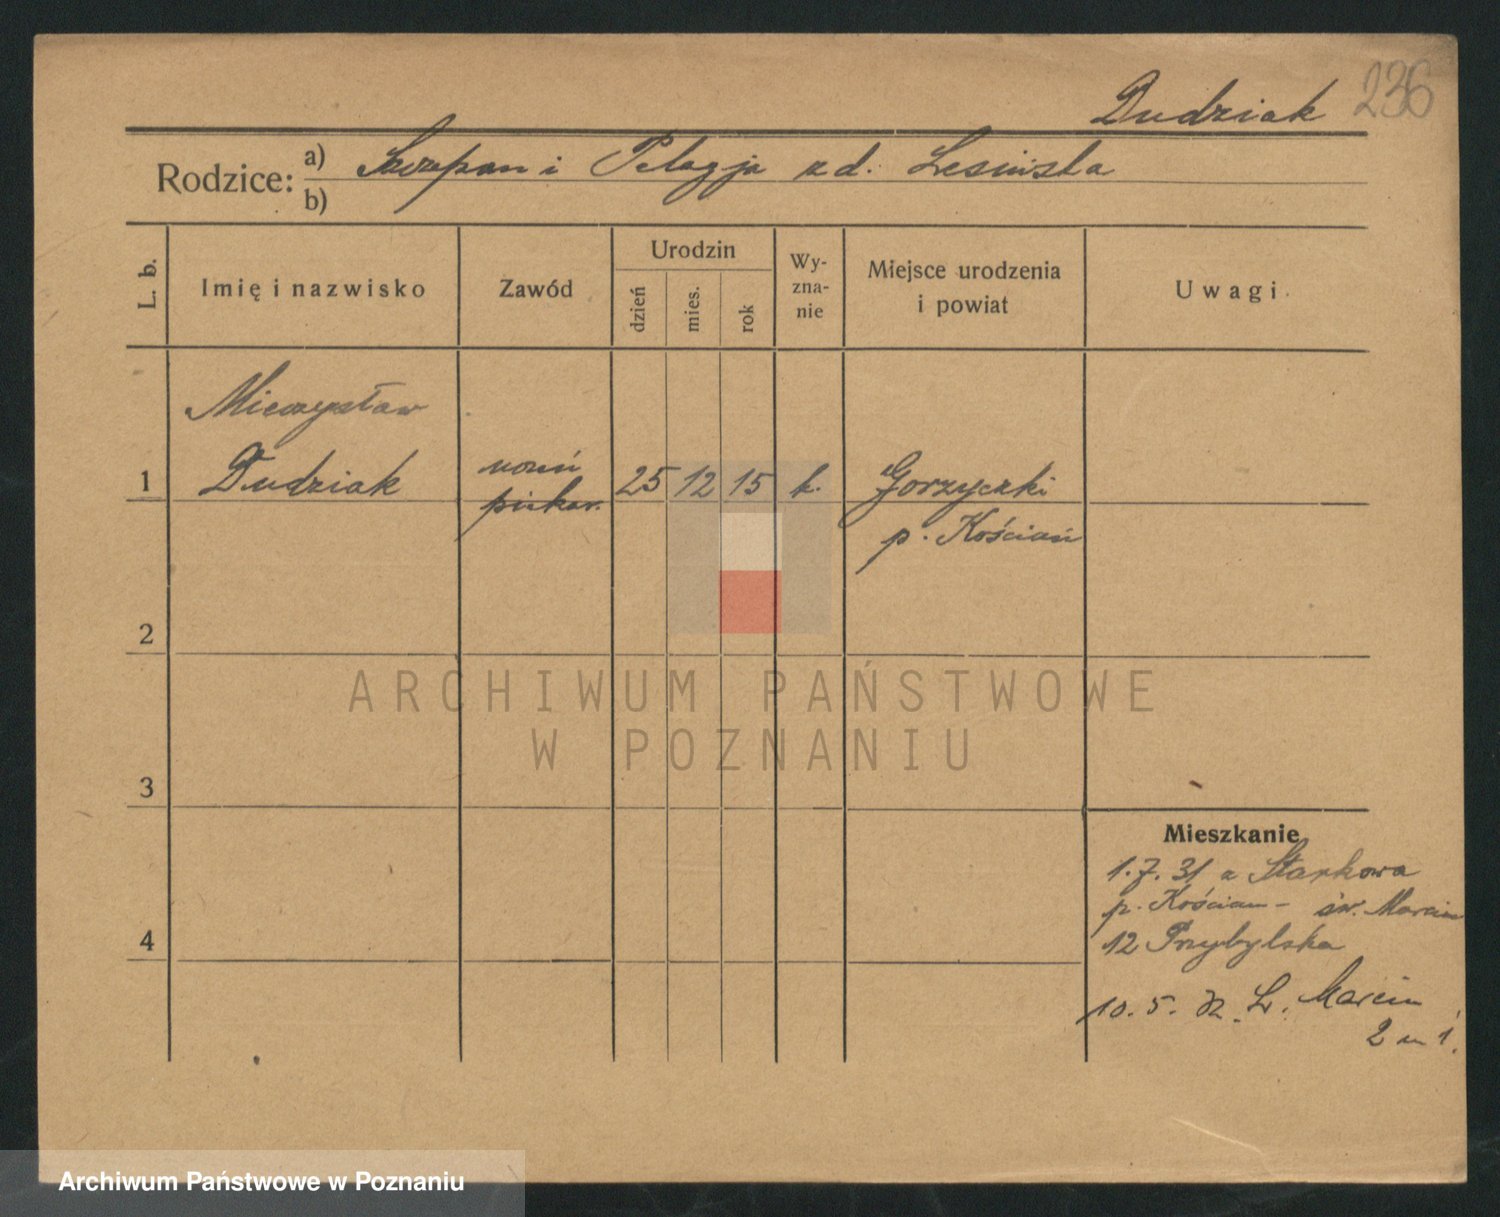 236
Dudziak
Rodzice: a) Szczepan i Pelagja z d. Lesińska
b)
L. b.
Imię i nazwisko
Zawód
Urodzin
dzień
mies.
rok
Wy-
zna-
nie
Miejsce urodzenia
i powiat
Uwagi.
Mieczysław
1 Dudziak uczeń 25 12 15 k. Gorzyczki
piekar. p. Kościan
2
3
4
Mieszkanie
1.7.31 z Starkowa
p. Kościan - św. Marcin
12 Przybylska
10.5.32 Marcin
2 m 1.
ARCHIWUM PAŃSTWOWE
W POZNANIU
Archiwum Państwowe w Poznaniu